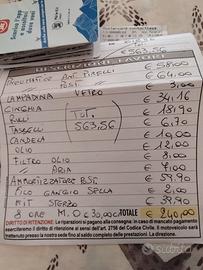 Scarica l'app
563,56
DESCRIZIONE LAVORI
PNEUMATICO ANT PIRELLI € 58,00
" POST. " € 64,00
LAMPADINA VETRO € 3,00
CINGHIA € 34,16
RULLI TOT. € 18,40
TASSELLI 563,56 € 6,70
CANDELA € 10,00
OLIO € 12,00
FILTRO OLIO € 8,00
" ARIA € 7,00
AMMORTIZZATORE BSC € 59,90
FILO GANCIO SELLA € 2,00
KIT STERZO € 39,90
8 ORE M.O € 30,00 TOTALE € 240,00
DIRITTO DI RITENZIONE: Le riparazioni si pagano in contanti. In caso di mancato pagamento
eserciteremo il diritto di ritenzione ai sensi dell'art. 2756 del Codice Civile. Il motoveicolo sarà
trattenuto presso la nostra sede fino al saldo completo delle prestazioni.
subito.it